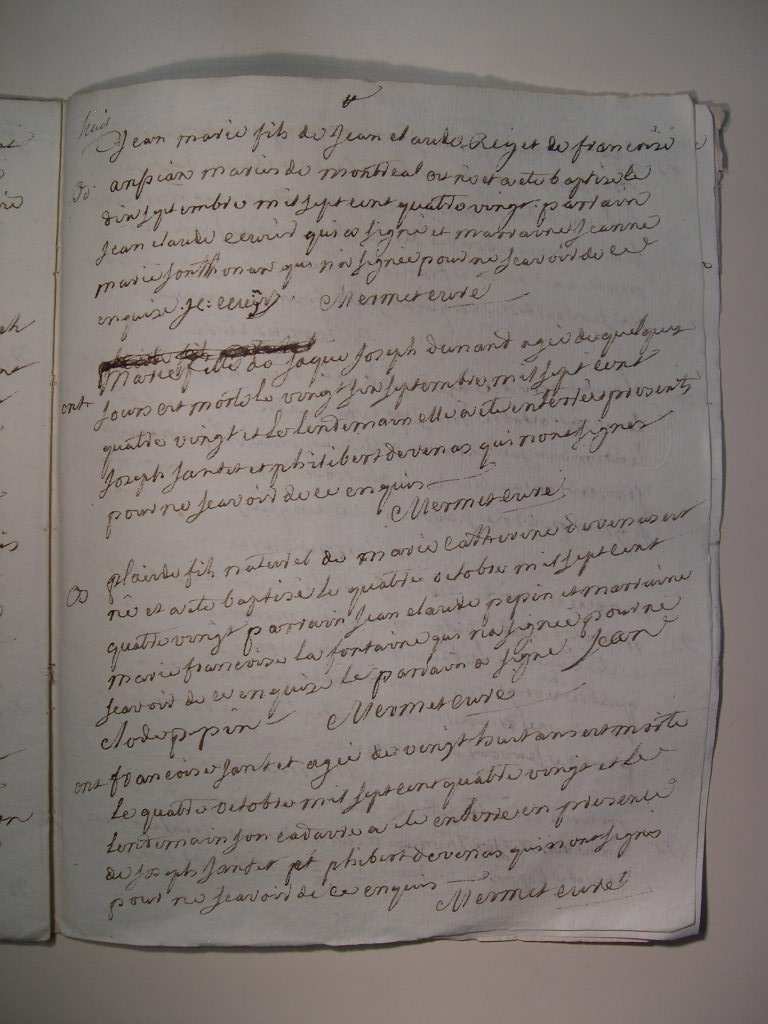 huit
Jean marie fils de Jean claude Reij et de francoise
anpian mariés de montréal est né et a ete baptisé le
dix septembre mil sept cent quatre vingt parrain
Jean claude qui a signé et marraine Jeanne
marie qui n'a signée pour ne scavoir de ce
enquise Mermet curé
Marie fille de Jaque Joseph dunand agée de quelques
ont
jours est morte le vingt six septembre mil sept cent
quatre vingt et le lendemain elle a ete enterrée presents
Joseph Jantet et philibert devenas qui n'ont signes
pour ne scavoir de ce enquis Mermet curé
placide fils naturel de marie Catherine devenas est
né et a ete baptisé le quatre octobre mil sept cent
quatre vingt parrain Jean claude pepin et marraine
marie francoise la fontaine qui n'a signée pour ne
scavoir de ce enquise le parrain a signé Jean
clode pepin Mermet curé
ont francoise Jantet agée de vingt huit ans est morte
le quatre octobre mil sept cent quatre vingt et le
lendemain son cadavre a ete enterré en presence
de Joseph Jantet et phibert devenas qui n'ont signés
pour ne scavoir de ce enquis Mermet curé